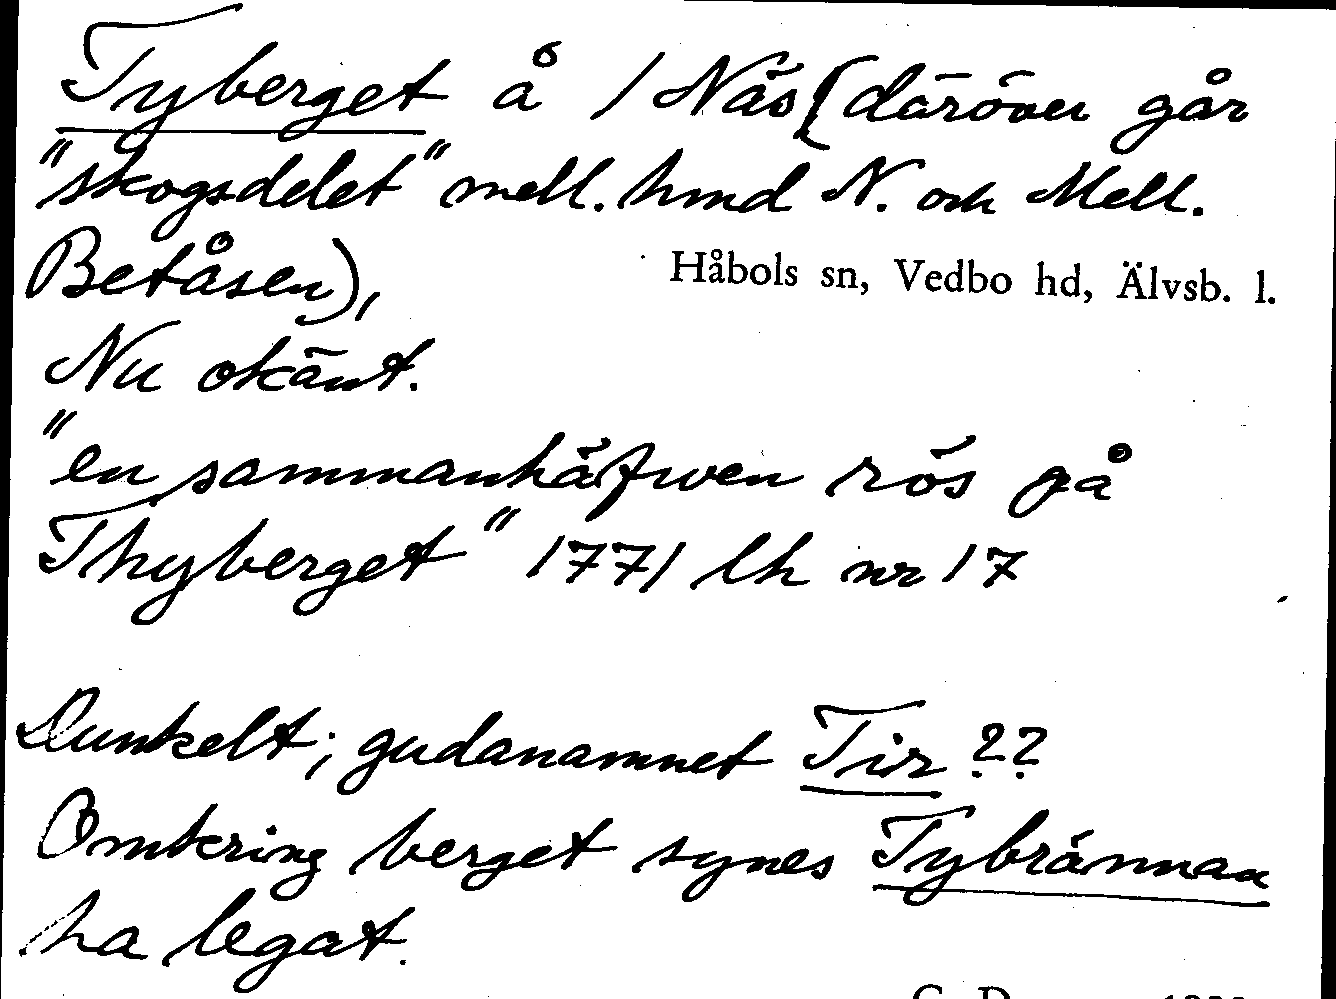 Tyberget å 1 Näs (däröver går
"skogsdelet" mell. hmd N. och Mell.
Betåsen),
Håbols sn, Vedbo hd, Älvsb. l.
Nu okänt.
"en sammanhäfwen rös på
Thyberget" 1771 lh nr 17
Dunkelt; gudanamnet Tir ??
Omkring berget synes Tybrännan
ha legat.